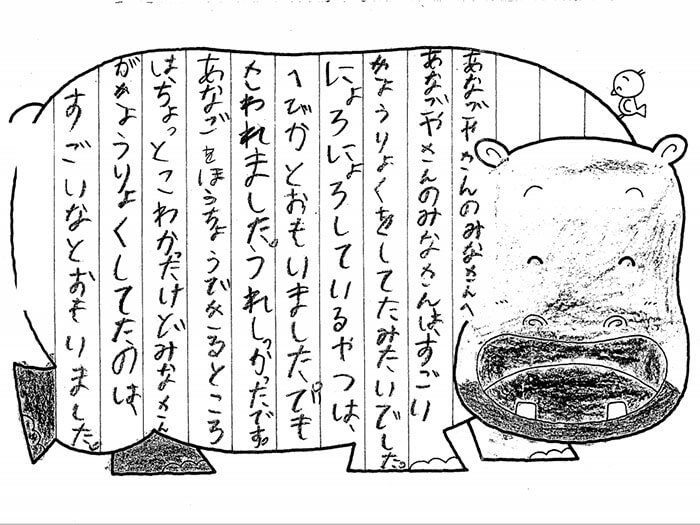 あなごやさんのみなさんへ
あなごやさんのみなさんは、すごい
きょうりょくをしてたみたいでした。
にょろにょろしているやつは、
へびかとおもいました。でも
さわれました。うれしかったです。
あなごをほうちょうできるところ
は、ちょっとこわかっだけどみなさん
がきょうりょくしてたのは、
すごいなとおもいました。